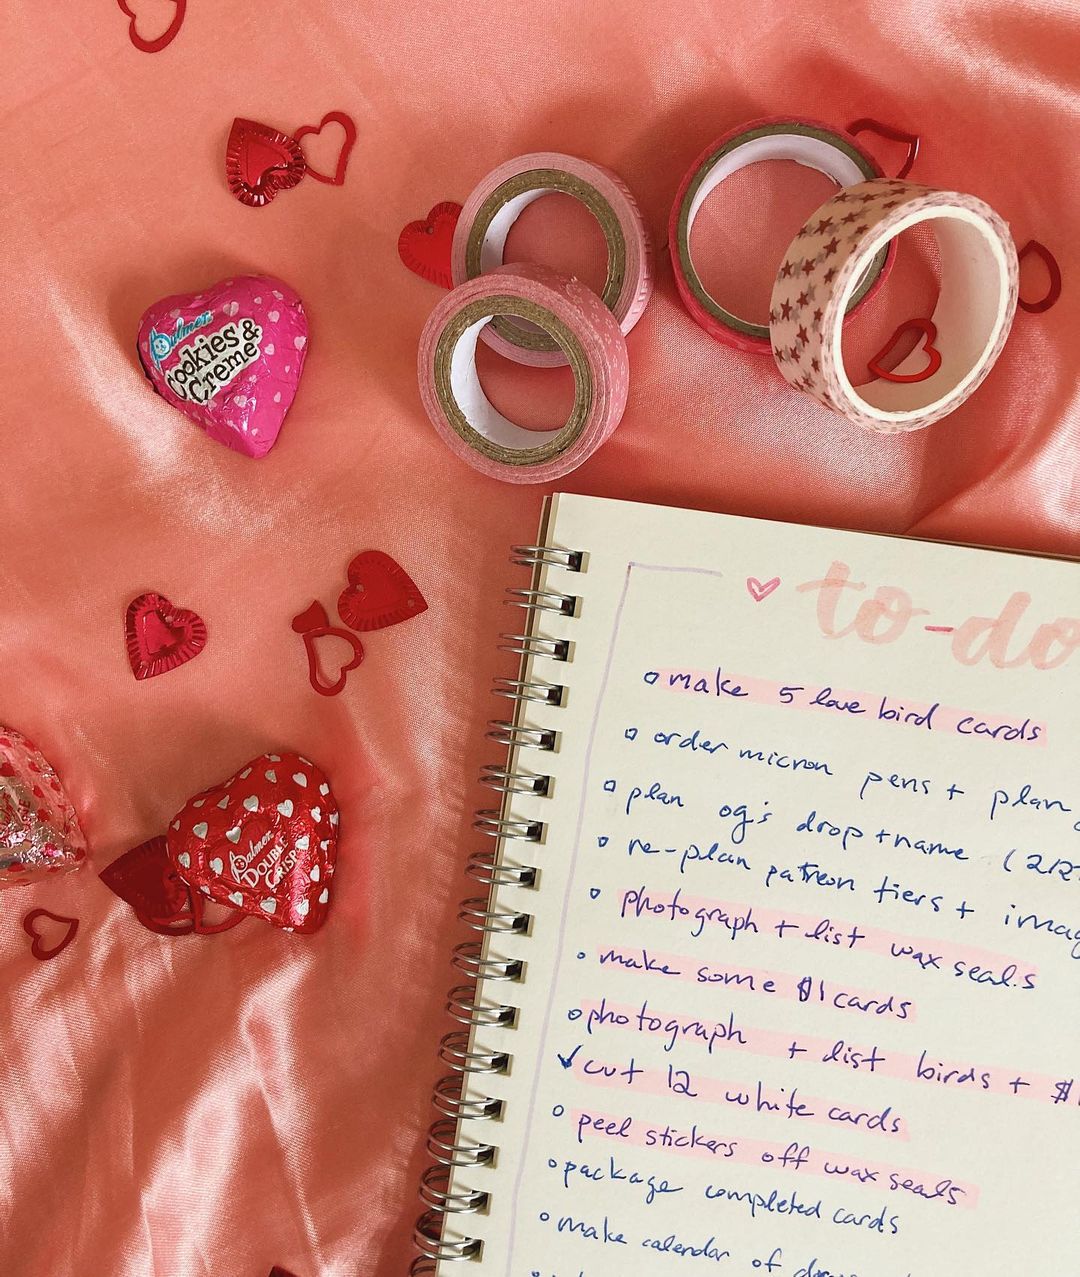 Palmer
Cookies &
Creme
to-do
make 5 love bird cards
order micron pens + plan
plan og's drop + name (2/2
re-plan patreon tiers + imag
photograph + list wax seals
make some $1 cards
photograph + list birds + $1
✓ cut 12 white cards
peel stickers off wax seals
package completed cards
make calendar of
Palmer
Double
Crisp